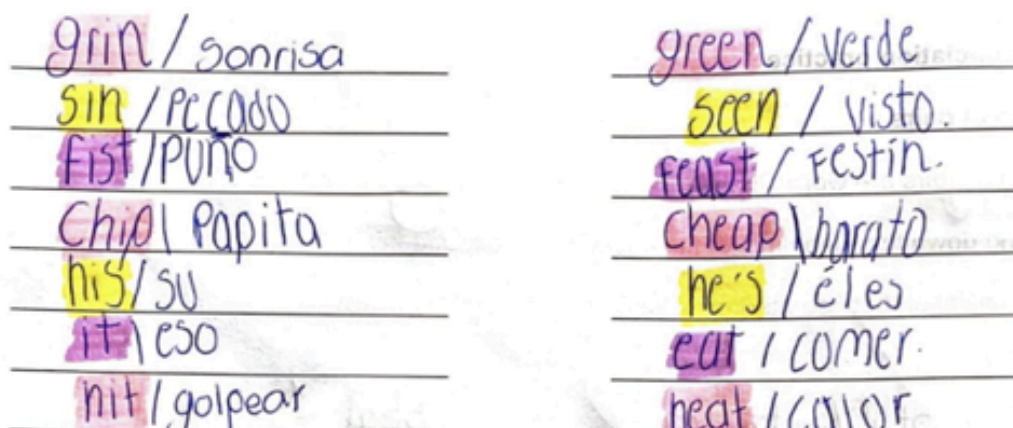 grin / sonrisa
sin / pecado
Fist / puño
Chip \ Papita
his / su
it \ eso
hit / golpear
green / verde
seen / visto.
feast / Festín.
cheap \ barato
he's / él es
eat / comer.
heat / calor